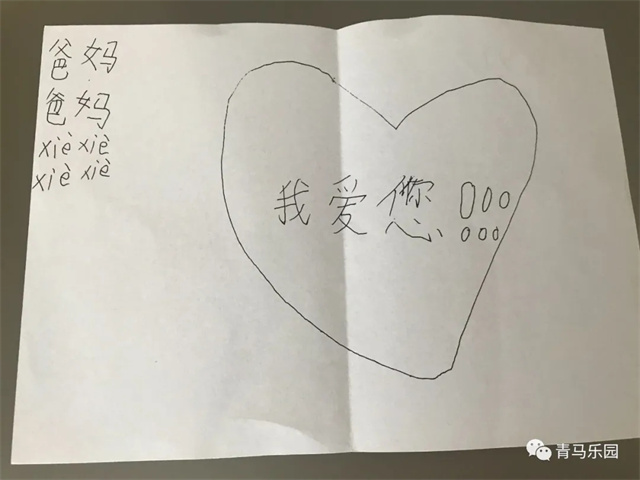 爸妈
爸妈
xiè xiè
xiè xiè
我爱您!!!
青马乐园